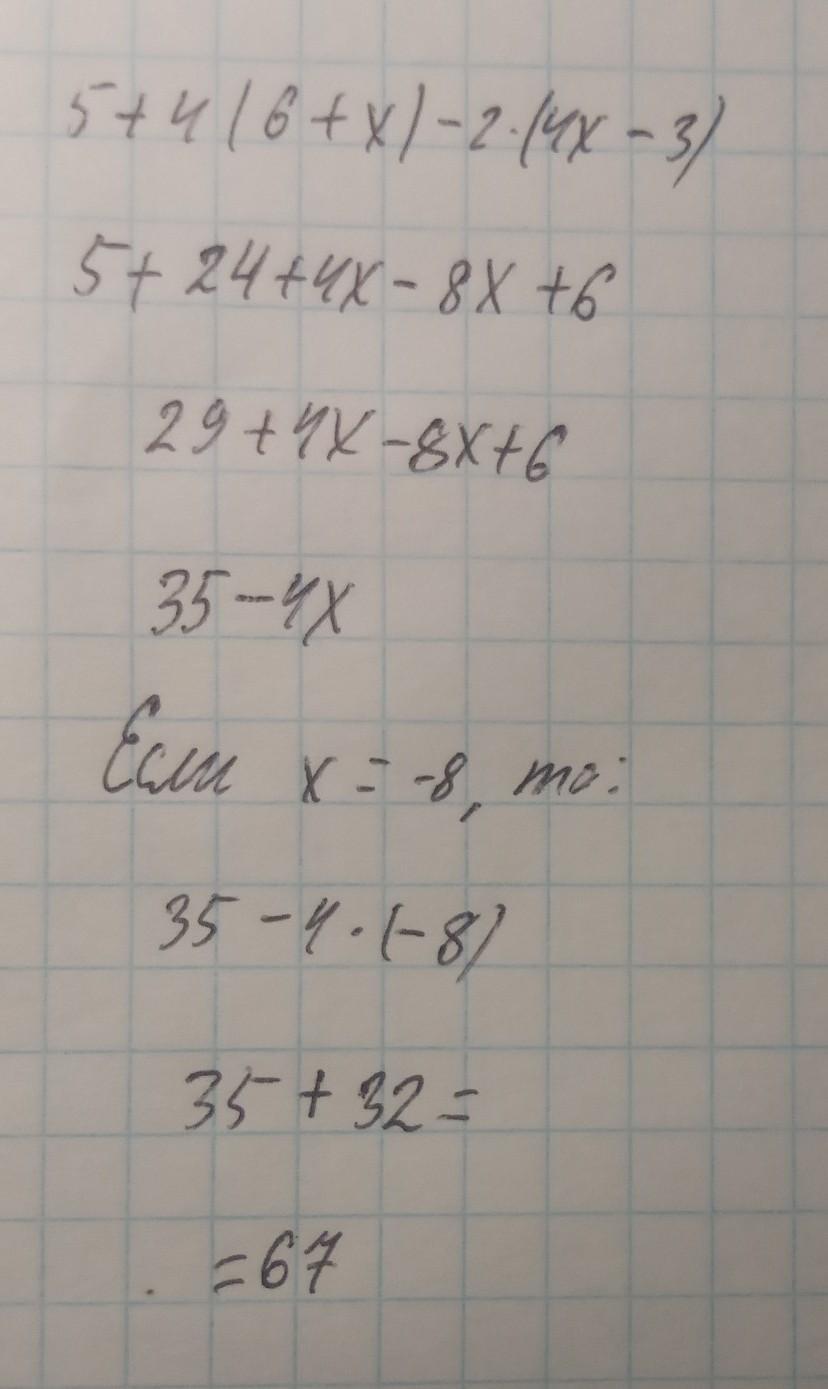 5+4(6+x)-2·(4x-3)
5+24+4x-8x+6
29+4x-8x+6
35-4x
Если x=-8, то:
35-4·(-8)
35+32=
=67